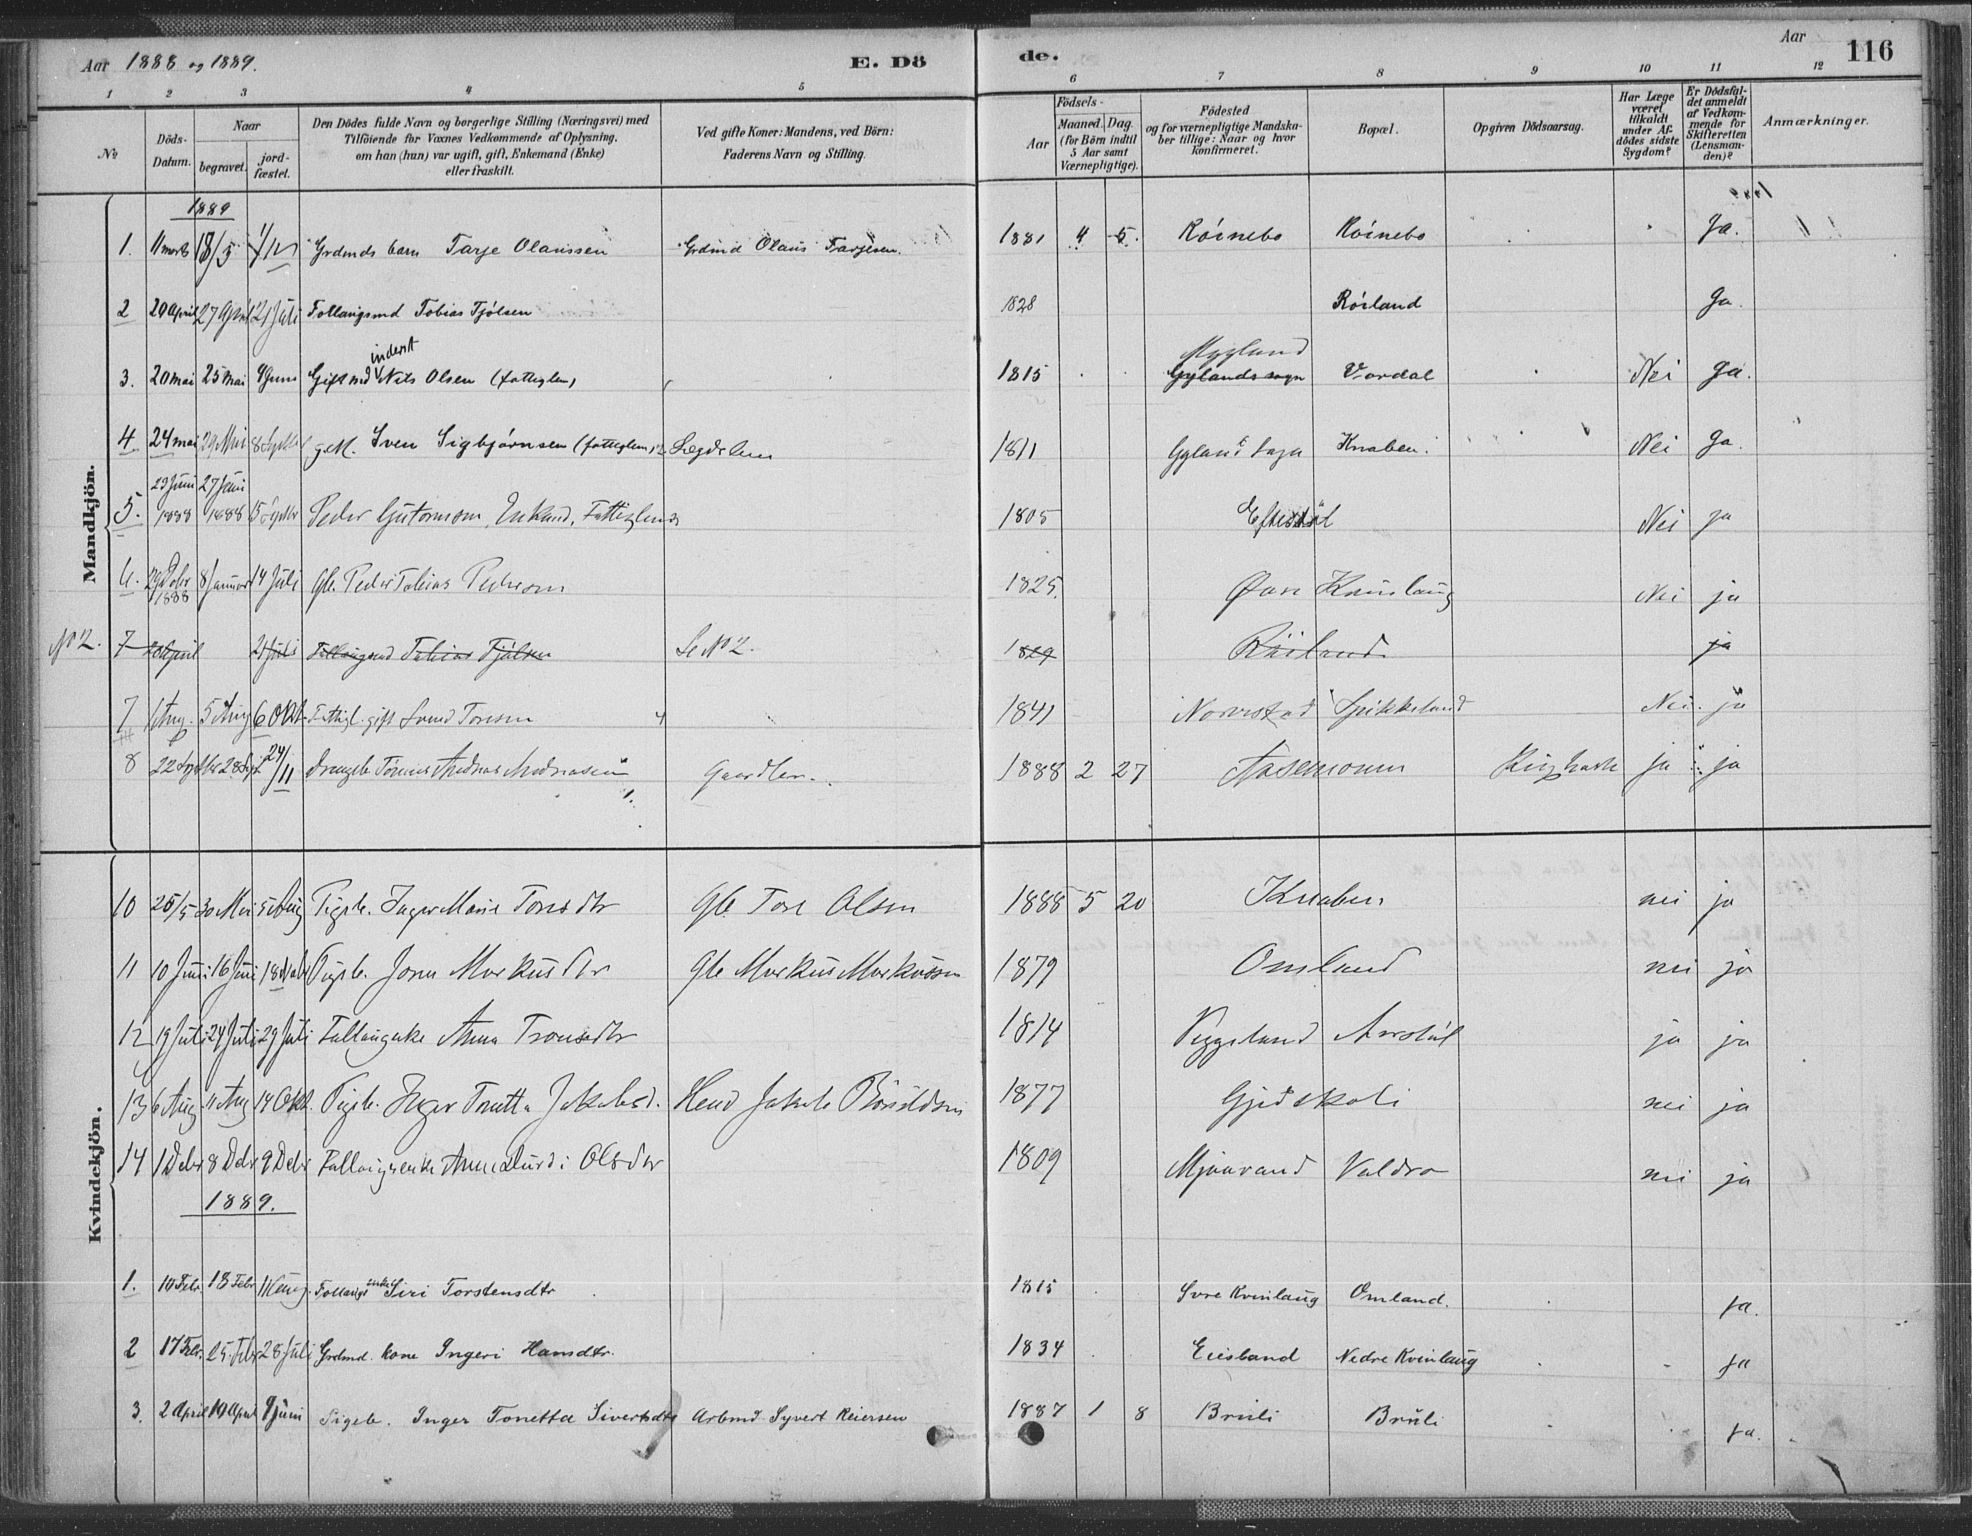 Aar 1888 og 1889. E. Dö de. Aar 116
1 2 3 4 5 6 7 8 9 10 11 12
No Döds-Datum. Naar begravet. jord-fæstet. Den Dödes fulde Navn og borgerlige Stilling (Næringsvei) med Tilföiende for Voxnes Vedkommende af Oplysning, om han (hun) var ugift, gift, Enkemand (Enke) eller fraskilt. Ved gifte Koner: Mandens, ved Børn: Faderens Navn og Stilling. Födsels- Aar Maaned. Dag. (for Börn indtil 5 Aar samt Værnepligtige). Födested og for værnepligtige Mandskaber tillige: Naar og hvor konfirmeret. Bopæl. Opgiven Dödsaarsag. Har Læge været tilkaldt under Afdödes sidste Sygdom? Er Dödsfaldet anmeldt af Vedkommende for Skifteretten (Lensmanden)? Anmærkninger.
Mandkjön.
1889
1. 11 marts 18/3 Grdmds barn Tarje Olaussen Grdmd Olaus Tarjesen. 1881 4 5. Roinebo Roinebo Ja.
2 20 April 27 April 21 Juli Follaugsmd Tobias Tjölsen 1828 Röiland Ja.
inderst
3. 20 mai 25 mai 9 Juni Gift md Nils Olsen (fattiglem) 1815 Mygland Gylands sogn Vordal Nei Ja.
4 24 mai 29 Mai 8 Septbr gift. Sven Sigbjörnsen (fattiglem) Lægdslem 1811 Gyland Sogn Knaben. Nei Ja.
5. 23 Juni 1888 27 Juni 1888 15 Septbr Peder Gutormsen, Enkmd, Fattiglem 1805 Eftestöl Nei ja
6. 29 Debr 1888 8 Januar 14 Juli Gb. Peder Tobias Pedersen 1825. Øvre Kvinlaug Nei ja
No 2. 7 20 April 21 Juli Follaugsmd Tobias Tjölsen Se No 2. 1829 Röiland ja
7 1 Aug. 5 Aug 6 Okt. Fattigl. gift Svend Toresen 1841 Narvestad Spikkeland Nei. ja
8 22 Septbr 28 Sept 24/11 Drengeb. Tönnes Andreas Andreassen Gaardbr. 1888 2 27 Aasemoen Kighoste ja ja
Kvindekjön.
10 25/5 30 Mai 5 Aug Pigeb. Inger Marie Toresdtr Gb. Tore Olsen 1888 5 20 Knaben nei ja
11 10 Juni 16 Juni 18 Pigeb. Jona Markusdtr Gb Markus Markussen 1879 Omland nei ja
12 19 Juli 24 Juli 29 Juli Follaugenke Anna Tronsdtr 1814 Viggeland Avestöl ja ja
13 6 Aug 11 Aug 14 Okt. Pigeb. Inger Tonetta Jakobsd. 1877 Gjedskoli nei ja
14 1 Debr 8 Debr 9 Debr Follaugsenke Anna Gurdi Olsdtr 1809 Mjaavand Valdra nei ja
1889.
1. 10 Febr. 18 Febr 11 Aug. Follaugs enke Siri Torstensdtr 1815 Svre Kvinlaug Omland. ja.
2 17 Febr. 25. Febr 28 Juli Grdmd. kone Ingeri Hansdtr. 1834 Eiesland Nedre Kvinlaug ja
3. 2 April 10 April 9 Juni Pigeb. Inger Tonetta Sivertsdtr Arbmd Syvert Reiersen 1887 1 8 Brüli Brüli ja.